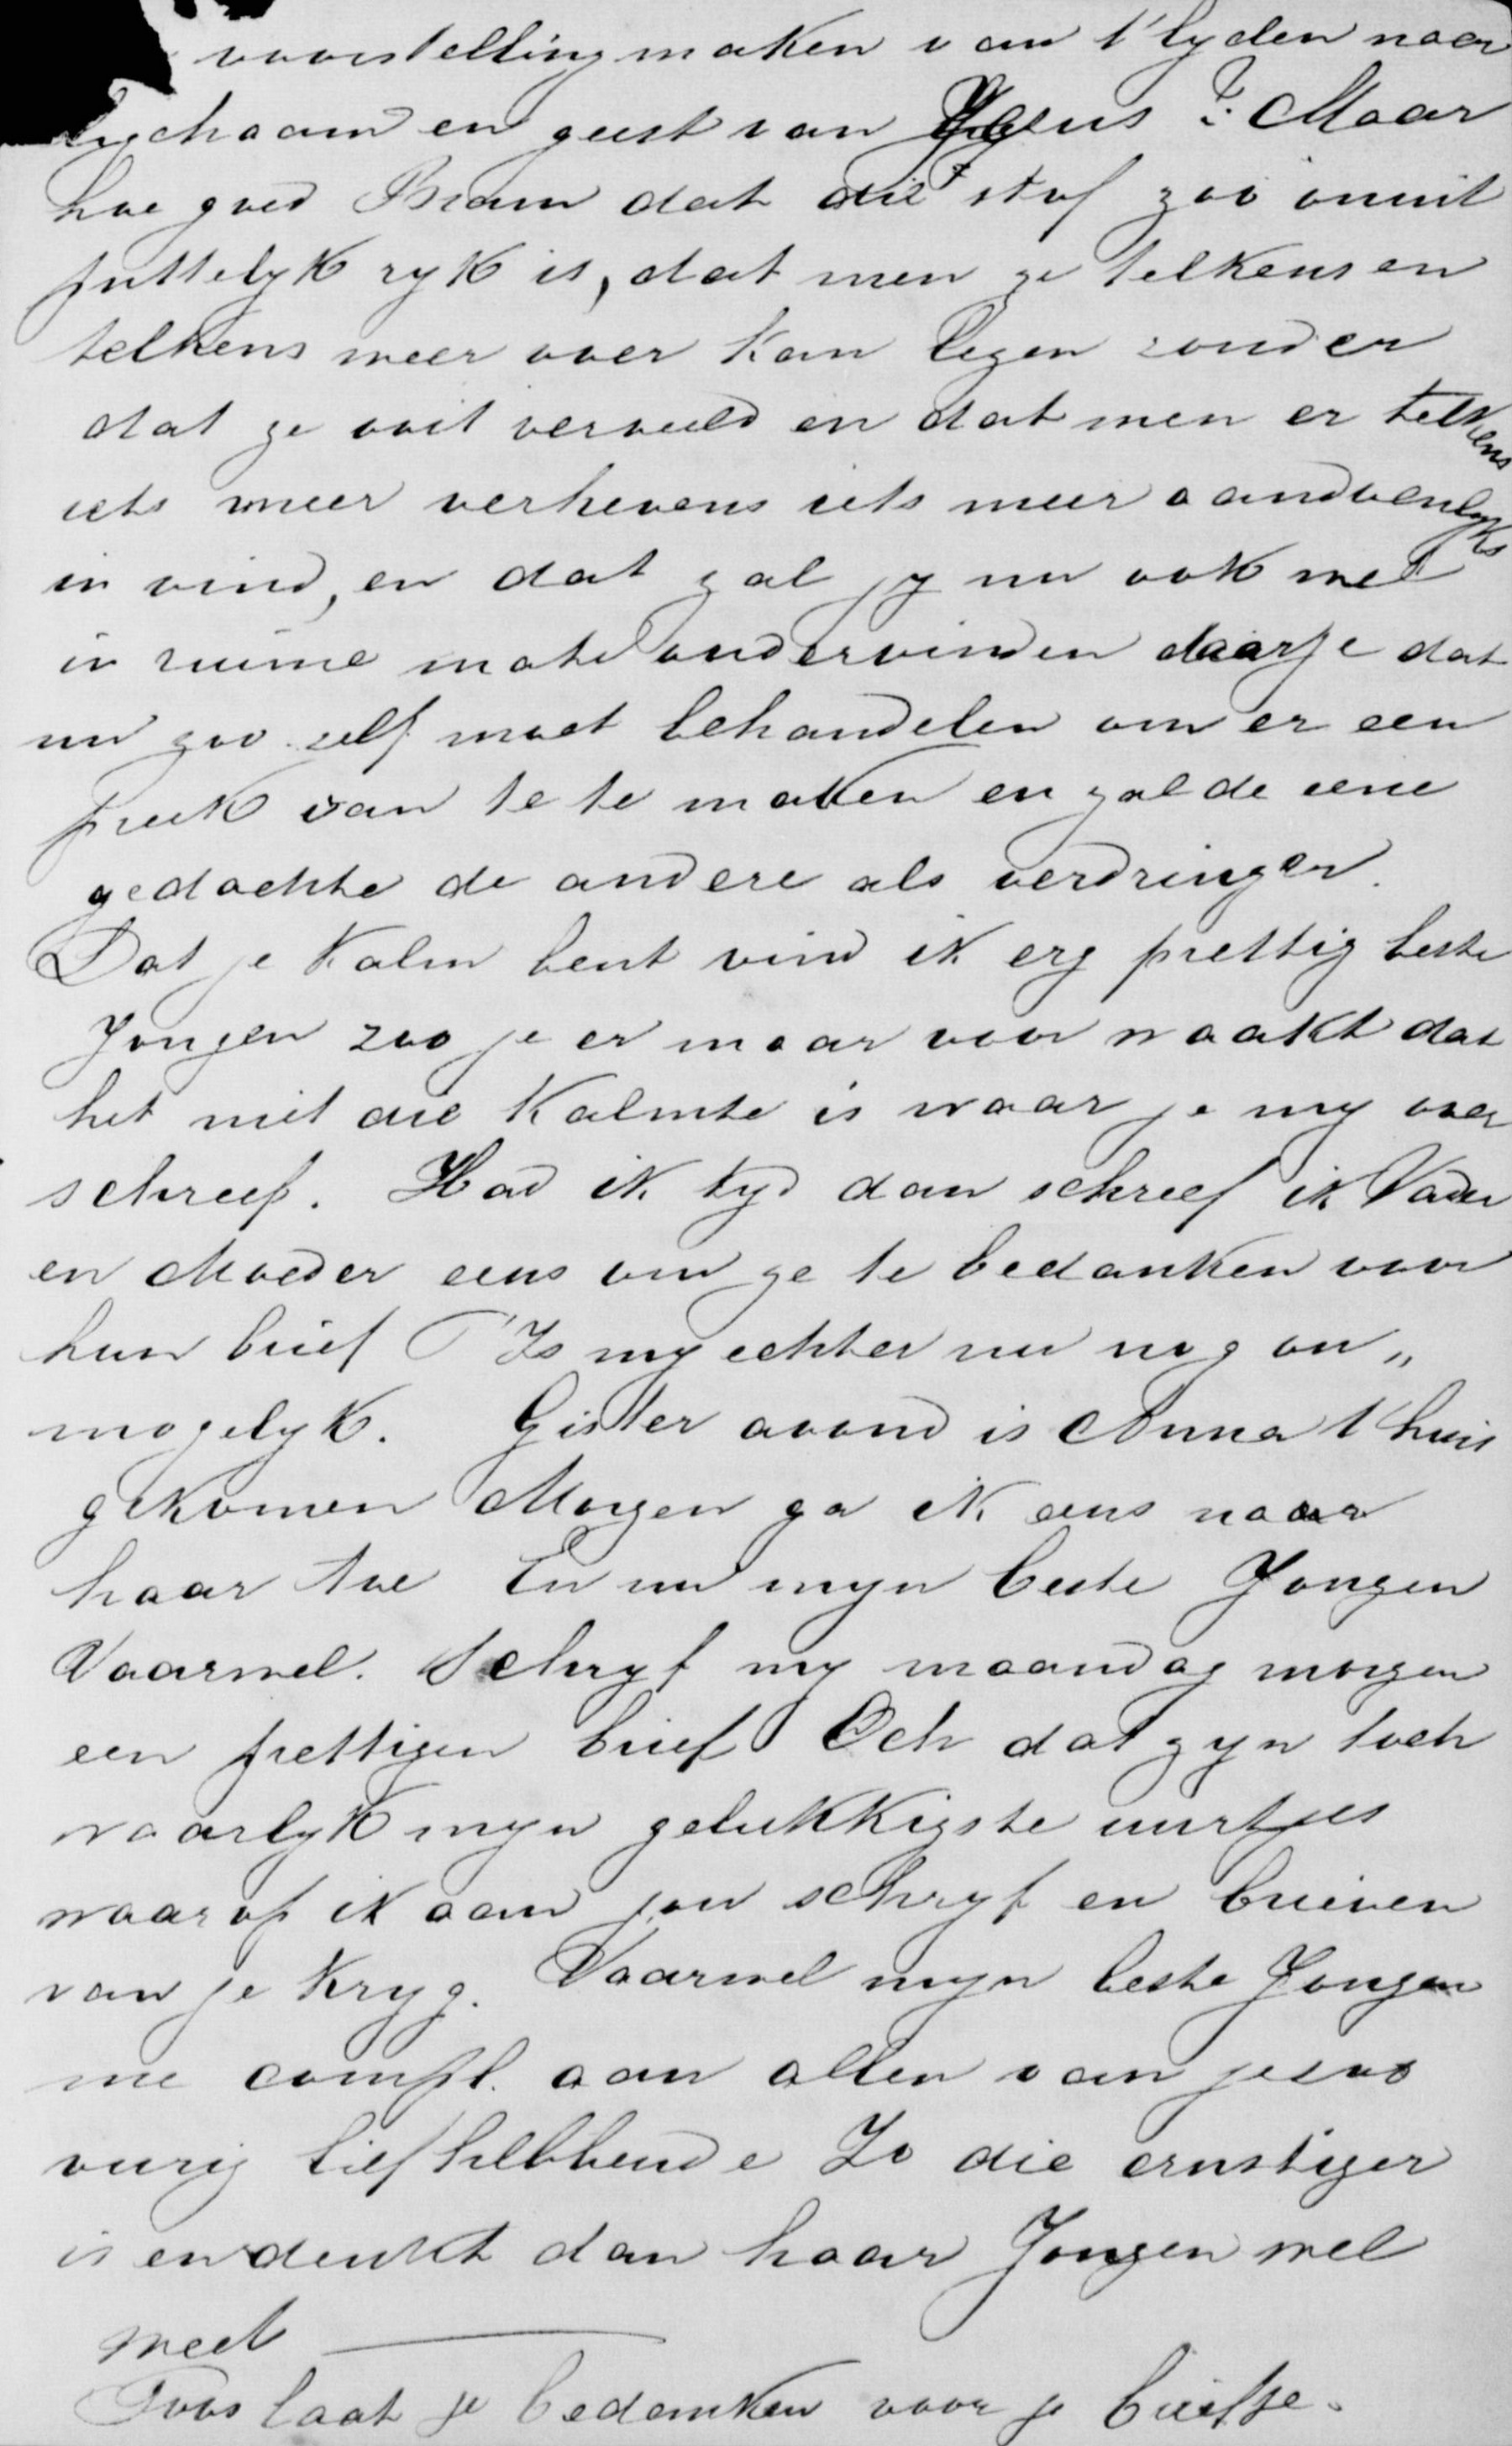 voorstelling maken van t'lyden naar
lychaam en geest van Jezus ? Maar
hoe goed Bram dat die stof zoo onuit
puttelyk ryk is, dat men ze telkens en
telkens meer over kan lezen zonder
dat ze ooit verveeld en dat men er telkens
iets meer verhevens iets meer aandoenlyks
in vind, en dat zal jy nu ook wel
in ruime mate ondervinden daar je dat
nu zoo zelf moet behandelen om er een
preek van te te maken en zal de eene
gedachte de andere als verdringen.
Dat je kalm bent vind ik erg prettig beste
Jongen zoo je er maar voor waakt dat
het niet die kalmte is waar je my over
schreef. Had ik tyd dan schreef ik Vader
en Moeder eens om ze te bedanken voor
hun brief T'Is my echter nu nog on„
mogelyk. Gister avond is Anna t'huis
gekomen Morgen ga ik eens naar
haar toe En nu myn beste Jongen
Vaarwel. Schryf my maandag morgen
een prettigen brief Och dat zyn toch
waarlyk myn gelukkigste uurtjes
waarop ik aan jou schryf en brieven
van je kryg. Vaarwel myn beste Jongen
me compl. aan allen van je zoo
vurig liefhebbende Jo die ernstiger
is en denkt dan haar Jongen wel
weet
Toos laat je bedanken voor je briefje.